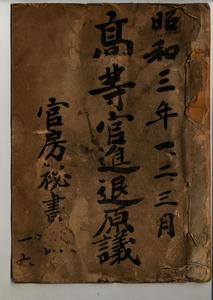 昭和三年一、二、三月
高等官進退原議
官房秘書